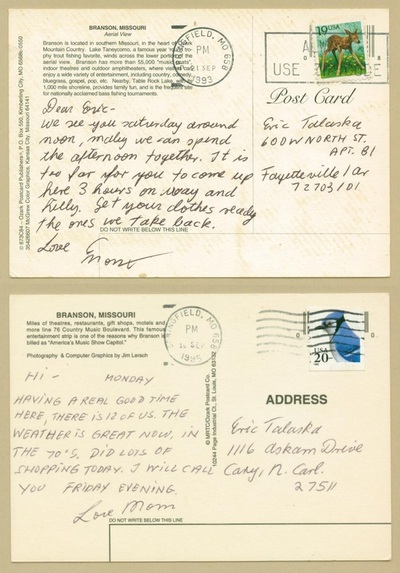 BRANSON, MISSOURI
Aerial View
Branson is located in southern Missouri, in the heart of
Mountain Country. Lake Taneycomo, a famous year
trophy trout fishing favorite, winds across the lower portion of the
aerial view. Branson has more than 55,000 "music
indoor theatres and outdoor amphitheaters, where
enjoy a wide variety of entertainment, including country, comedy,
bluegrass, gospel, pop, etc. Nearby, Table Rock Lake,
1,000 mile shoreline, provides family fun, and is the
for nationally acclaimed bass fishing tournaments.
SPRINGFIELD, MO 658
PM
21 SEP
1993
19 USA
USE
Post Card
Dear Eric-
we see you saturday around
noon, maby we can spend
the afternoon together. It is
too far for you to come up
here 3 hours on way and
hilly. Get your clothes ready
the ones we take back.
Love
Mom
DO NOT WRITE BELOW THIS LINE
Eric Talaska
600 W NORTH ST.
APT. 81
Fayetteville Ar
72703/01
Ozark Postcard Publishers, P.O. Box 550, Kimberling City, MO 65686-0550
McGrew Color Graphics, Kansas City, Missouri 64141
BRANSON, MISSOURI
Miles of theatres, restaurants, gift shops, motels and
more line 76 Country Music Boulevard. This famous
entertainment strip is one of the reasons why Branson is
billed as "America's Music Show Capitol."
Photography & Computer Graphics by Jim Lersch
SPRINGFIELD, MO 658
PM
SEP
1995
USA
20
Hi - MONDAY
HAVING A REAL GOOD TIME
HERE, THERE IS 12 OF US. THE
WEATHER IS GREAT NOW, IN
THE 70'S. DID LOTS OF
SHOPPING TODAY. I WILL CALL
YOU FRIDAY EVENING.
Love Mom
DO NOT WRITE BELOW THIS LINE
© MRTC/Ozark Postcard Co.
10244 Page Industrial Ct., St. Louis, MO 63132
ADDRESS
Eric Talaska
1116 Askam Drive
Cary, N. Carl.
27511